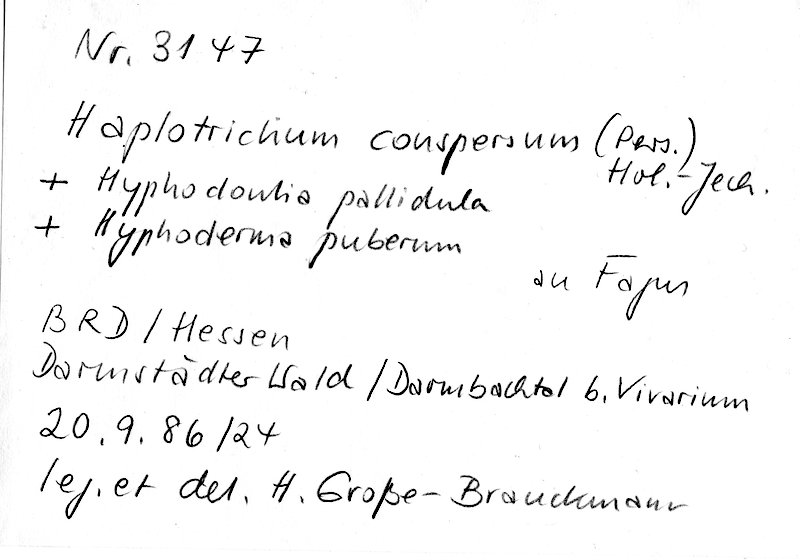 Nr. 3147
Haplotrichum conspersum (Pers.)
Hol.-Jech.
+ Hyphodontia pallidula
+ Hyphoderma puberum
an Fagus
BRD / Hessen
Darmstädter Wald / Darmbachtal b. Vivarium
20.9.86/24
leg. et det. H. Große-Brauckmann